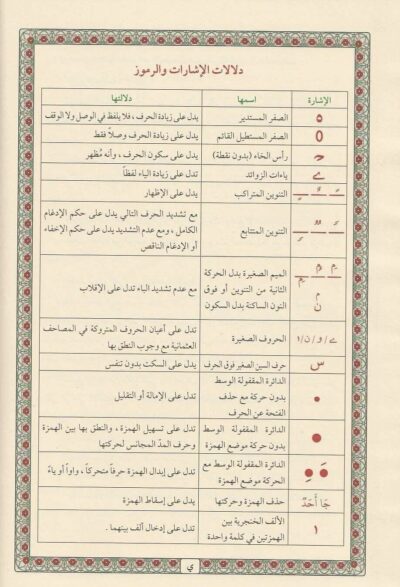 دلالات الإشارات والرموز
الإشارة اسمها دلالتها
ه الصفر المستدير يدل على زيادة الحرف، فلا يلفظ في الوصل ولا الوقف
0 الصفر المستطيل القائم يدل على زيادة الحرف وصلاً فقط
رأس الخاء (بدون نقطة) يدل على سكون الحرف، وأنه مُظهر
ياءات الزوائد تدل على زيادة الياء لفظاً
التنوين المتراكب يدل على الإظهار
التنوين المتتابع
مع تشديد الحرف التالي يدل على حكم الإدغام
الكامل، ومع عدم التشديد يدل على حكم الإخفاء
أو الإدغام الناقص
الميم الصغيرة بدل الحركة
الثانية من التنوين أو فوق
النون الساكنة بدل السكون
مع عدم تشديد الباء تدل على الإقلاب
ے / و / ن / ا الحروف الصغيرة
تدل على أعيان الحروف المتروكة في المصاحف
العثمانية مع وجوب النطق بها
س حرف السين الصغير فوق الحرف يدل على السكت بدون تنفس
الدائرة المقفولة الوسط
بدون حركة مع حذف
الفتحة عن الحرف
تدل على الإمالة أو التقليل
الدائرة المقفولة الوسط
بدون حركة موضع الهمزة
تدل على تسهيل الهمزة، والنطق بها بين الهمزة
وحرف المدّ المجانس لحركتها
الدائرة المقفولة الوسط مع
الحركة موضع الهمزة
تدل على إبدال الهمزة حرفاً متحركاً، واواً أو ياءً
جَا أَحَدٌ حذف الهمزة وحركتها يدل على إسقاط الهمزة
ا
الألف الخنجرية بين
الهمزتين في كلمة واحدة
تدل على إدخال ألف بينهما .
ي